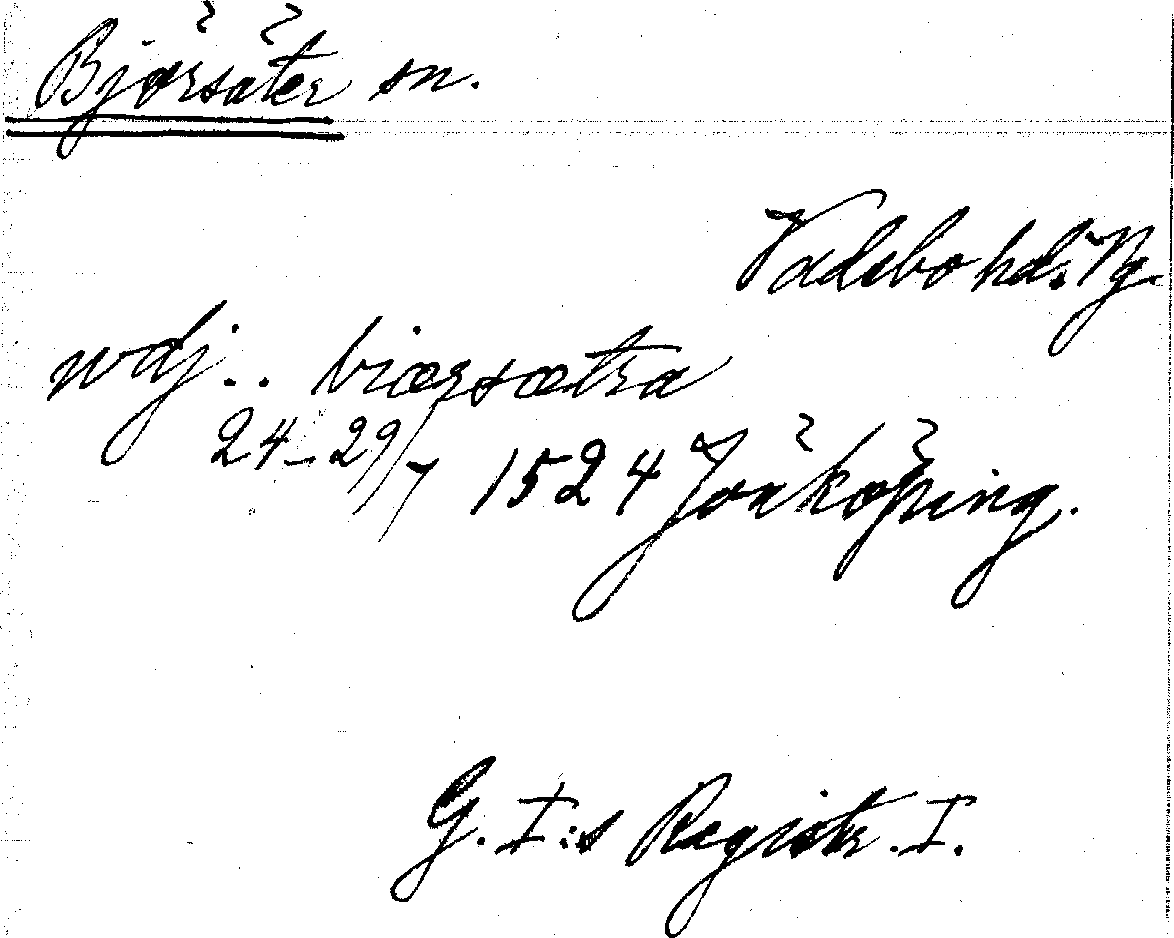 Björsäter sn.
Vadsbo hd. Vg.
wdj.. biærsætra
24–29/7 1524 Jönköping.
G. I:s Registr. I.